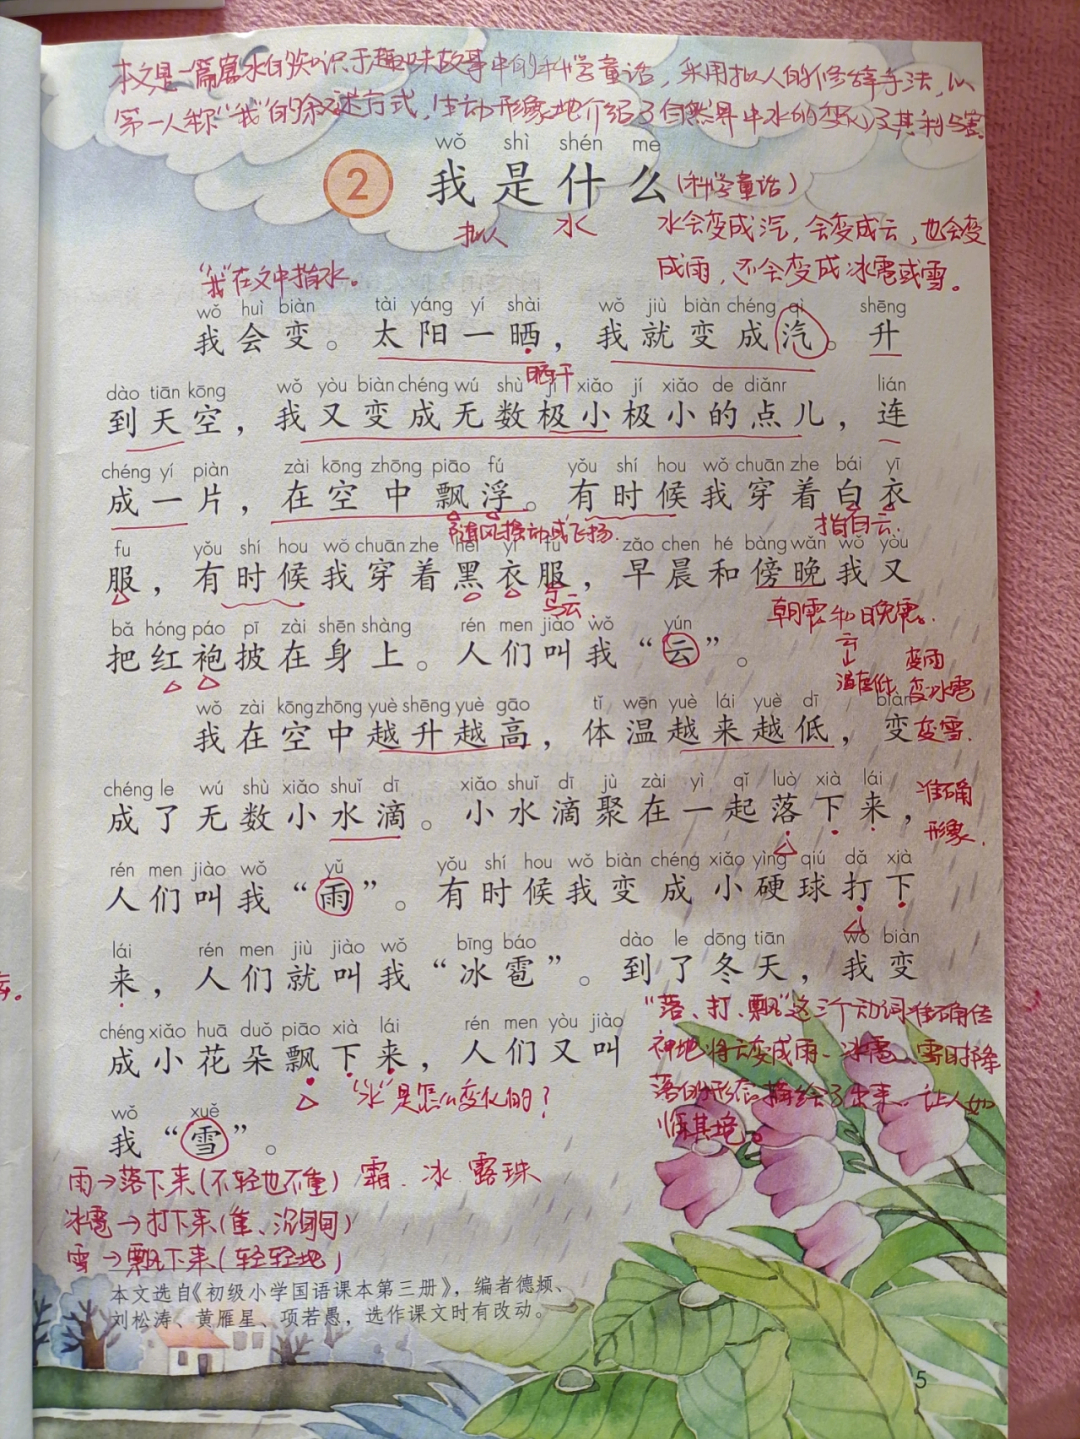 本文是一篇寓水的知识于趣味故事中的科学童话，采用拟人的修辞手法，以
第一人称“我”的叙述方式，生动形象地介绍了自然界中水的变化及其利与害
wǒ shì shén me
2 我是什么(科学童话)
拟人 水 水会变成汽，会变成云，也会变
“我”在文中指水。 成雨，不会变成冰雹或雪。
wǒ huì biàn tài yáng yí shài wǒ jiù biàn chéng qì shēng
我会变。太阳一晒，我就变成汽。升
晒干
dào tiān kōng wǒ yòu biàn chéng wú shù jí xiǎo jí xiǎo de diǎnr lián
到天空，我又变成无数极小极小的点儿，连
chéng yí piàn zài kōng zhōng piāo fú yǒu shí hou wǒ chuān zhe bái yī
成一片，在空中飘浮。有时候我穿着白衣
随风摇动或飞扬. 指白云.
fu yǒu shí hou wǒ chuān zhe hēi yī fu zǎo chen hé bàng wǎn wǒ yòu
服，有时候我穿着黑衣服，早晨和傍晚我又
乌云. 朝霞和晚霞.
bǎ hóng páo pī zài shēn shàng rén men jiào wǒ yún
把红袍披在身上。人们叫我“云”。
云 变雨
温度低 变冰雹
wǒ zài kōng zhōng yuè shēng yuè gāo tǐ wēn yuè lái yuè dī biàn
我在空中越升越高，体温越来越低，变
变雪.
chéng le wú shù xiǎo shuǐ dī xiǎo shuǐ dī jù zài yì qǐ luò xià lái
成了无数小水滴。小水滴聚在一起落下来，
准确
形象.
rén men jiào wǒ yǔ yǒu shí hou wǒ biàn chéng xiǎo yìng qiú dǎ xià
人们叫我“雨”。有时候我变成小硬球打下
lái rén men jiù jiào wǒ bīng báo dào le dōng tiān wǒ biàn
来，人们就叫我“冰雹”。到了冬天，我变
“落、打、飘”这三个动词准确传
chéng xiǎo huā duǒ piāo xià lái rén men yòu jiào
成小花朵飘下来，人们又叫
神地将云变成雨、冰雹、雪时降
“水”是怎么变化的？ 落的形态描绘了出来，让人如
wǒ xuě
我“雪”。
临其境。
雨→落下来(不轻也不重) 霜、冰、露珠
冰雹→打下来(重、沉甸甸)
雪→飘下来(轻轻地)
本文选自《初级小学国语课本第三册》，编者德颎、
刘松涛、黄雁星、项若愚，选作课文时有改动。
5